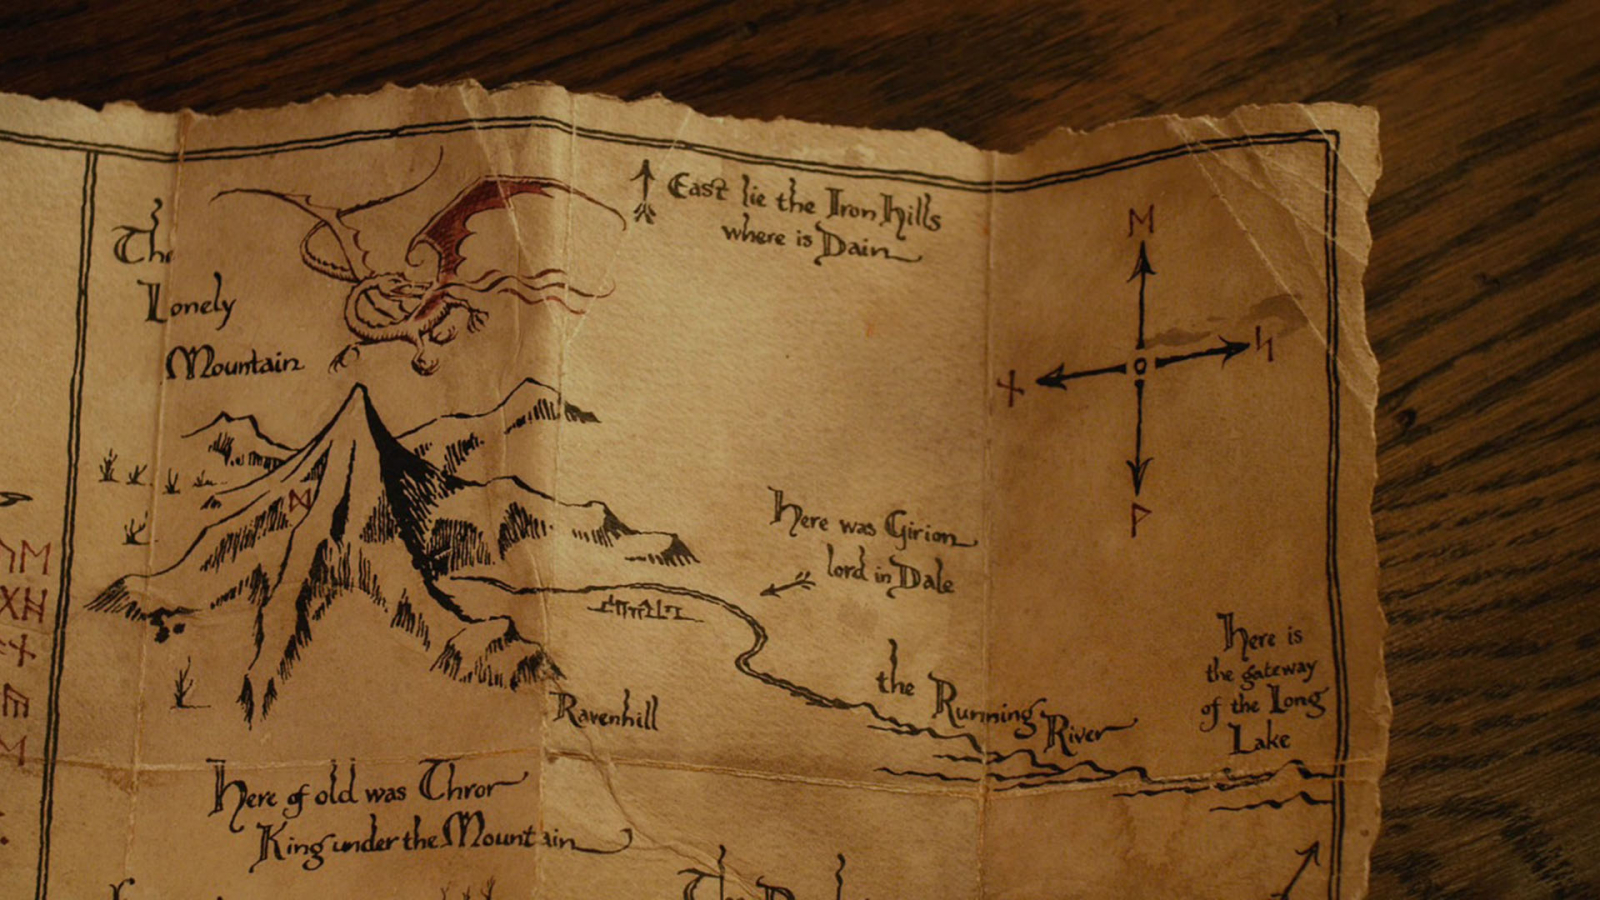 The
Lonely
Mountain
East lie the Iron Hills
where is Dain
ᛖ
ᛋ
ᚾ
ᚹ
ᛞ
Here was Girion
lord in Dale
the Running River
Here is
the gateway
of the Long
Lake
Ravenhill
Here of old was Thror
King under the Mountain
The